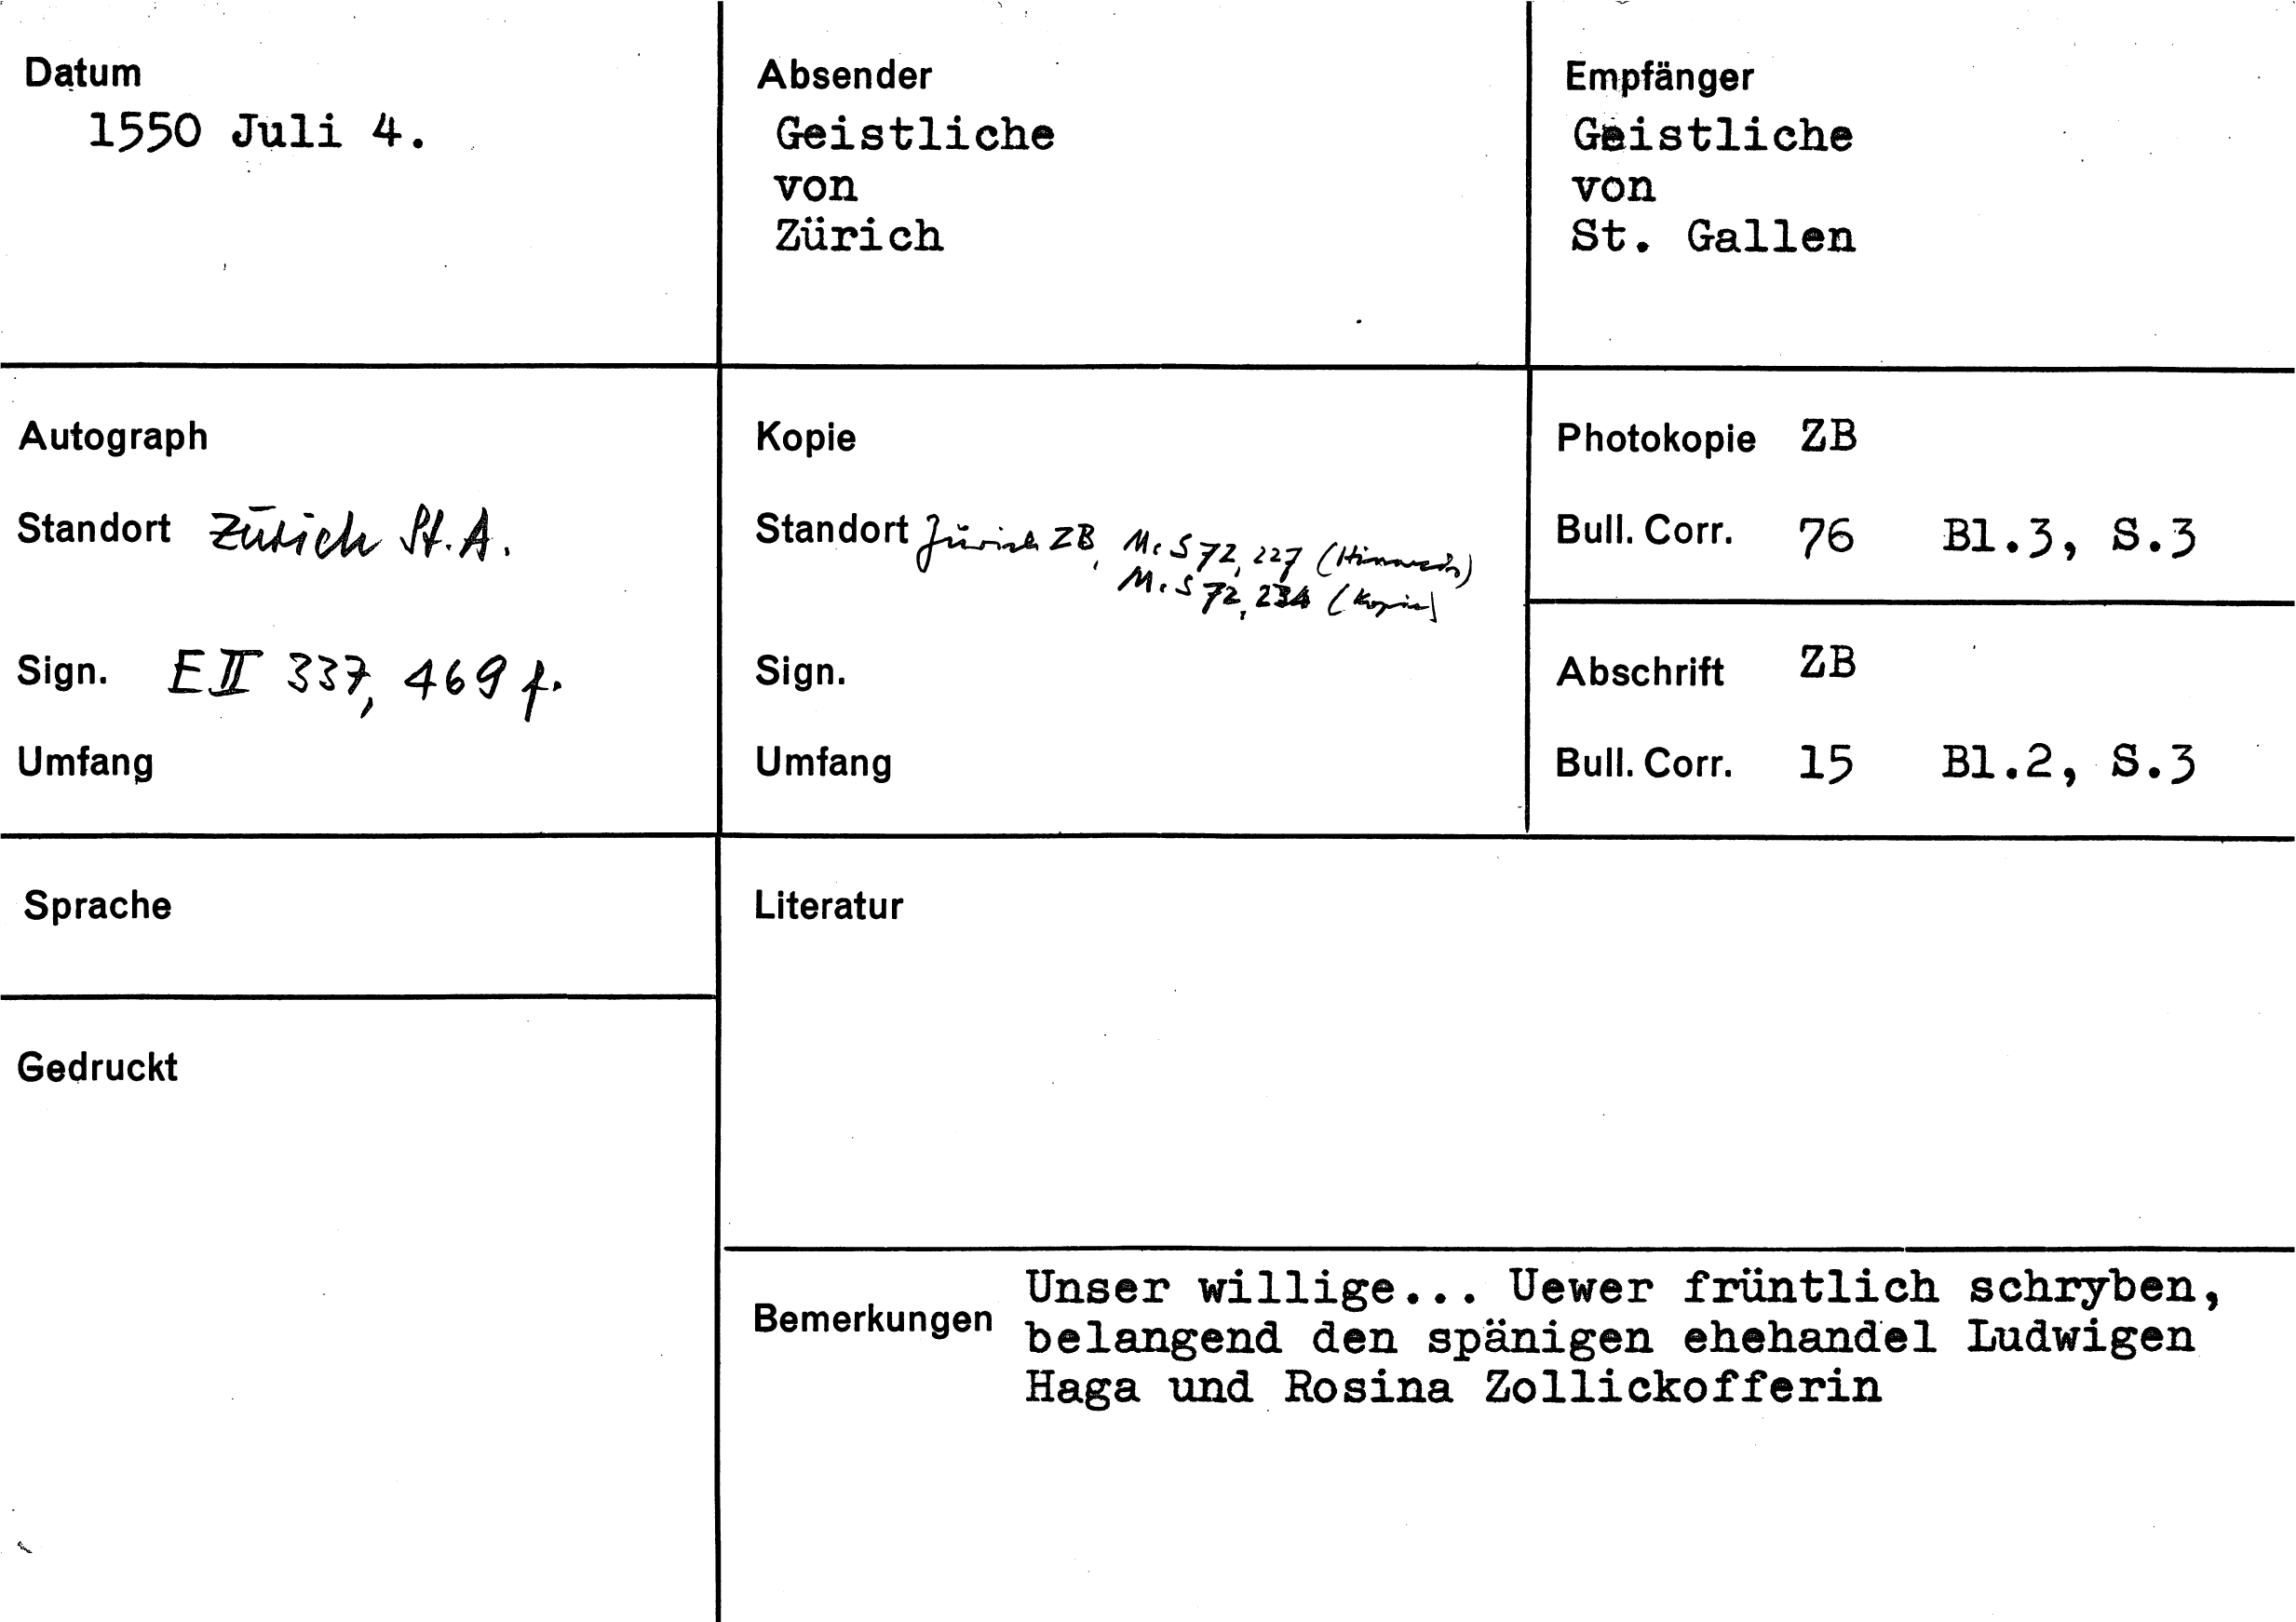 Datum
1550 Juli 4.
Absender
Geistliche
von
Zürich
Empfänger
Geistliche
von
St. Gallen
Autograph
Standort Zürich St. A.
Sign. E II 337, 469 f.
Umfang
Kopie
Standort Zürich ZB, Ms S 72, 227 (Hinweis)
Ms S 72, 234 (Kopie)
Sign.
Umfang
Photokopie ZB
Bull. Corr. 76 Bl.3, S.3
Abschrift ZB
Bull. Corr. 15 Bl.2, S.3
Sprache
Gedruckt
Literatur
Bemerkungen
Unser willige... Uewer früntlich schryben,
belangend den spänigen ehehandel Ludwigen
Haga und Rosina Zollickofferin